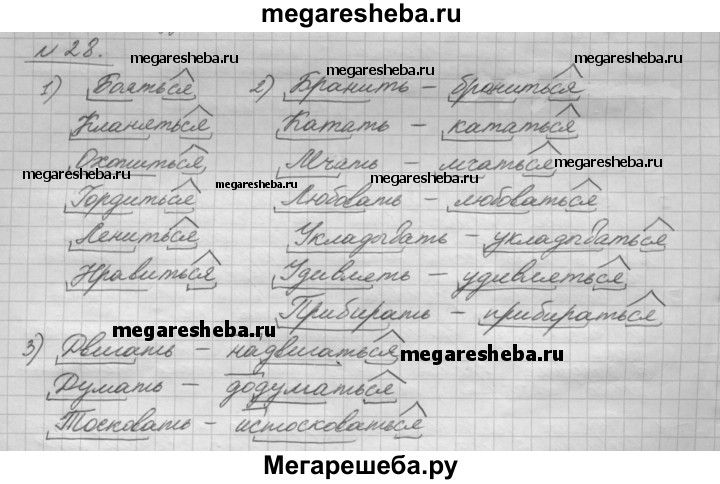 megaresheba.ru
№ 28.
1) Бояться 2) Бранить – браниться
megaresheba.ru megaresheba.ru megaresheba.ru
Кланяться Катать – кататься
Охотиться Мчать – мчаться
megaresheba.ru megaresheba.ru megaresheba.ru megaresheba.ru
Гордиться Любовать – любоваться
Лениться Укладывать – укладываться
Нравиться Удивлять – удивляться
Прибирать – прибираться
megaresheba.ru megaresheba.ru
3) Двигать – надвигаться
Думать – додуматься
Тосковать – истосковаться
Мегарешеба.ру